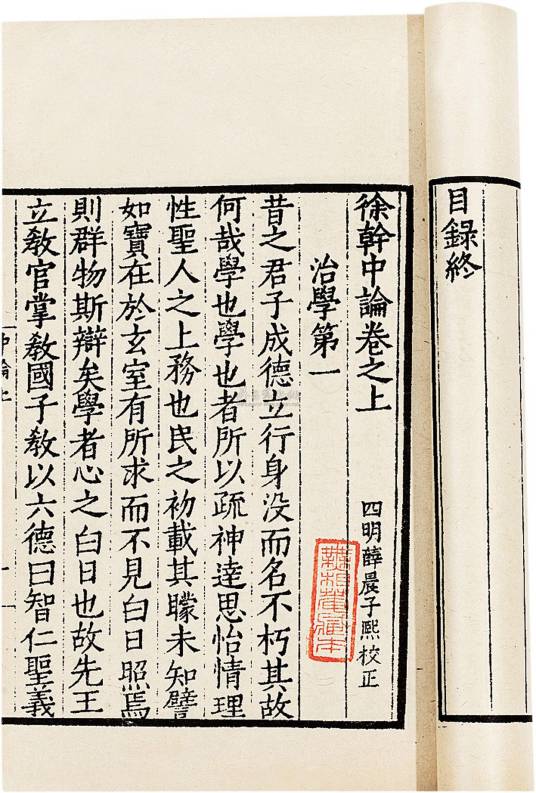 目錄終
徐幹中論卷之上
四明薛晨子熙校正
治學第一
昔之君子成德立行身没而名不朽其故
何哉學也學也者所以疏神達思怡情理
性聖人之上務也民之初載其矇未知譬
如寶在於玄室有所求而不見白日照焉
則群物斯辯矣學者心之白日也故先王
立敎官掌敎國子敎以六德曰智仁聖義
中論上
一